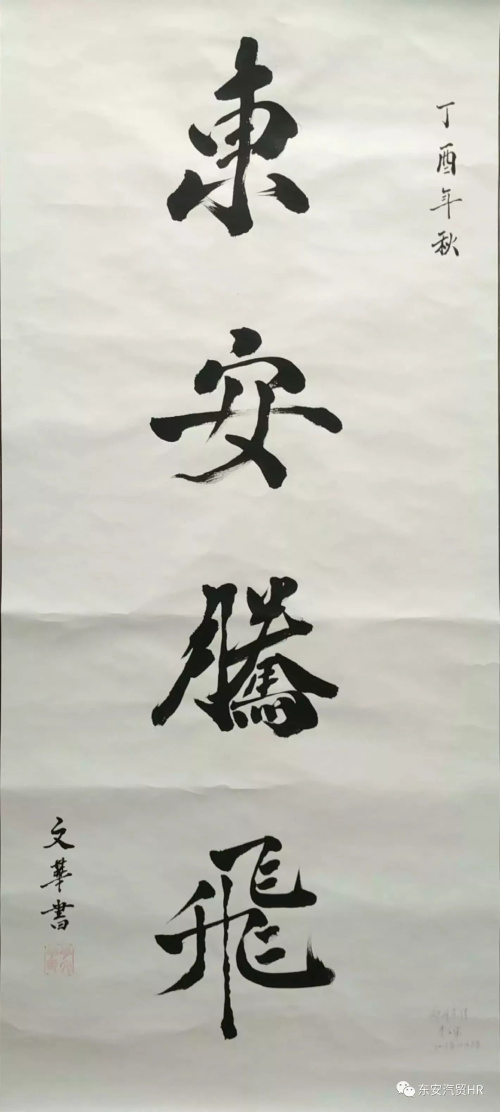 丁酉年秋
東安騰飛
文華書
东安汽贸HR